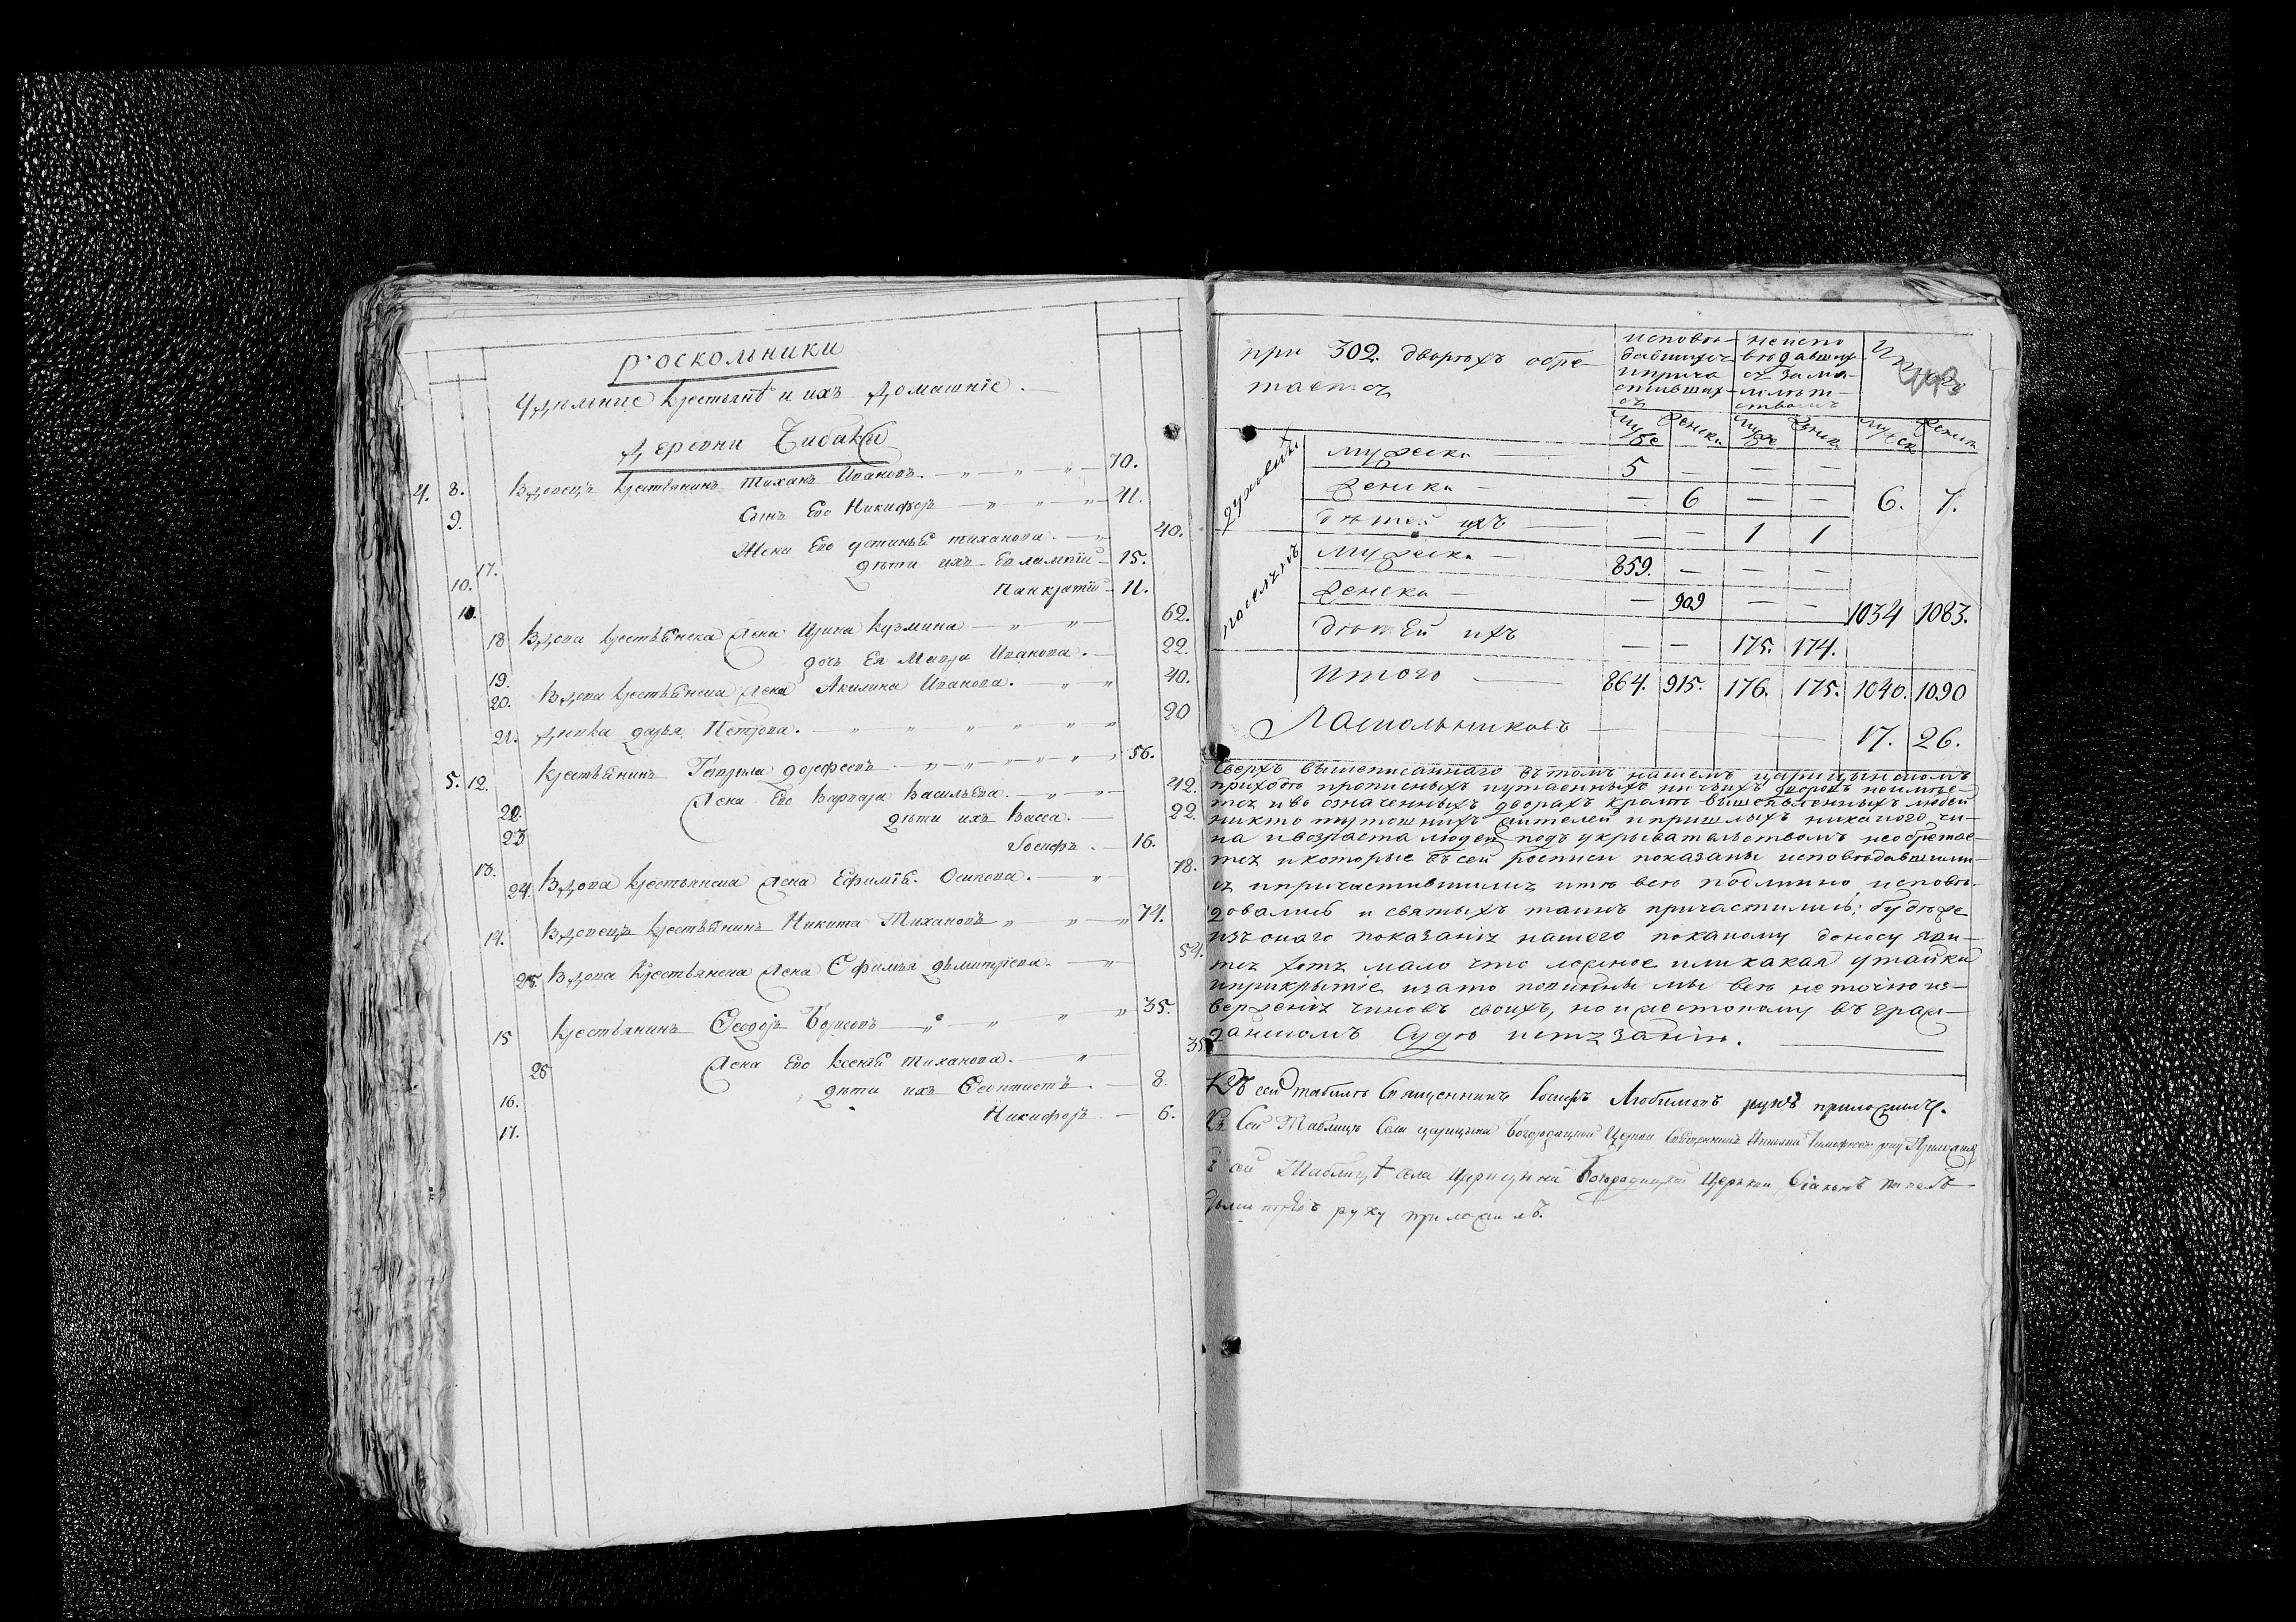 роскольники
Удѣльные крестьянѣ и ихъ домашніе.
Деревни Чибаки
4. 8. Вдовецъ крестьянинъ Тиханъ Ивановъ. 70.
9. Сынъ Его Никифоръ 41.
17. Жена Его устинья тиханова. 40.
10. дѣти ихъ Евлампий 15.
11. Панкратий 11.
18 Вдова крестьянска жена Ирина Кузмина 62.
19. дочь Ея Мавра Иванова. 22.
20. Вдова крестьянска жена Акилина Иванова. 40.
21. Девка дарья Петрова. 20
5. 12. Крестьянинъ Гаврила дорофеевъ 56.
22. Жена Его Варвара Васильева. 42.
23 дѣти ихъ Васса. 22.
13. Іосифъ. 16.
24. Вдова крестьянска жена Ефимія Осипова. 78.
14. Вдовецъ крестьянинъ Никита Тихановъ 74.
25. Вдова крестьянска жена Ефимья дьмитріева. 54.
15 крестьянинъ Феодоръ Борисовъ 35.
26 Жена Его Ксенія тиханова. 35
16. дѣти ихъ Феоктистъ. 8.
17. Никифоръ 6.
при 302. дворѣхъ обре-
таетсѧ
исповѣ-
давшихсѧ
и прича
стивших-
сѧ
неиспо
вѣдавших
сѧ за ма-
лолѣт-
ствомъ
муже женска муже женск мужеск женск
духовны
мужеска 5 — — —
женска — 6 — — 6. 7.
дѣтей ихъ — — 1 1
поселянъ
мужеска 859. — — —
женска — 909 — — 1034 1083.
дѣтей ихъ — — 175. 174.
итого 864. 915. 176. 175. 1040. 1090
Раскольниковъ 17. 26.
сверхъ вышеписаннаго въ томъ нашемъ царицынскомъ
приходѣ прописныхъ и утаенныхъ ничьихъ дворовъ неимѣе-
тсѧ и во означенныхъ дворахъ кромѣ вышеявленныхъ людей
никто тутошнихъ жителей и пришлыхъ никакого чи-
на и возраста людей подъ укрывательствомъ необретае-
тсѧ и которые въ сей росписи показаны исповѣдавшими-
сѧ и причастившимисѧ и тѣ всѣ подлинно исповѣ-
довались и святыхъ таинъ причастились; будѣже
изъ онаго показанія нашего по какому доносу яви-
тсѧ хотѧ мало что ложное или какая утайка
и прикрытіе и за то повинны мы всѣ не точию из-
верженія чиновъ своихъ, но и жестокому въ граж-
данскомъ Судѣ истѧзанію.
Къ сей табелѣ Священникъ Іосифъ Любимовъ руку приложилъ.
Къ Сей Таблицѣ Села царицына Богородицкой Церкви Священникъ Николай Тимофеевъ руку Приложилъ
сей Таблицѣ села Царицына Богородицкой Церькви Діаконъ
руку приложилъ.